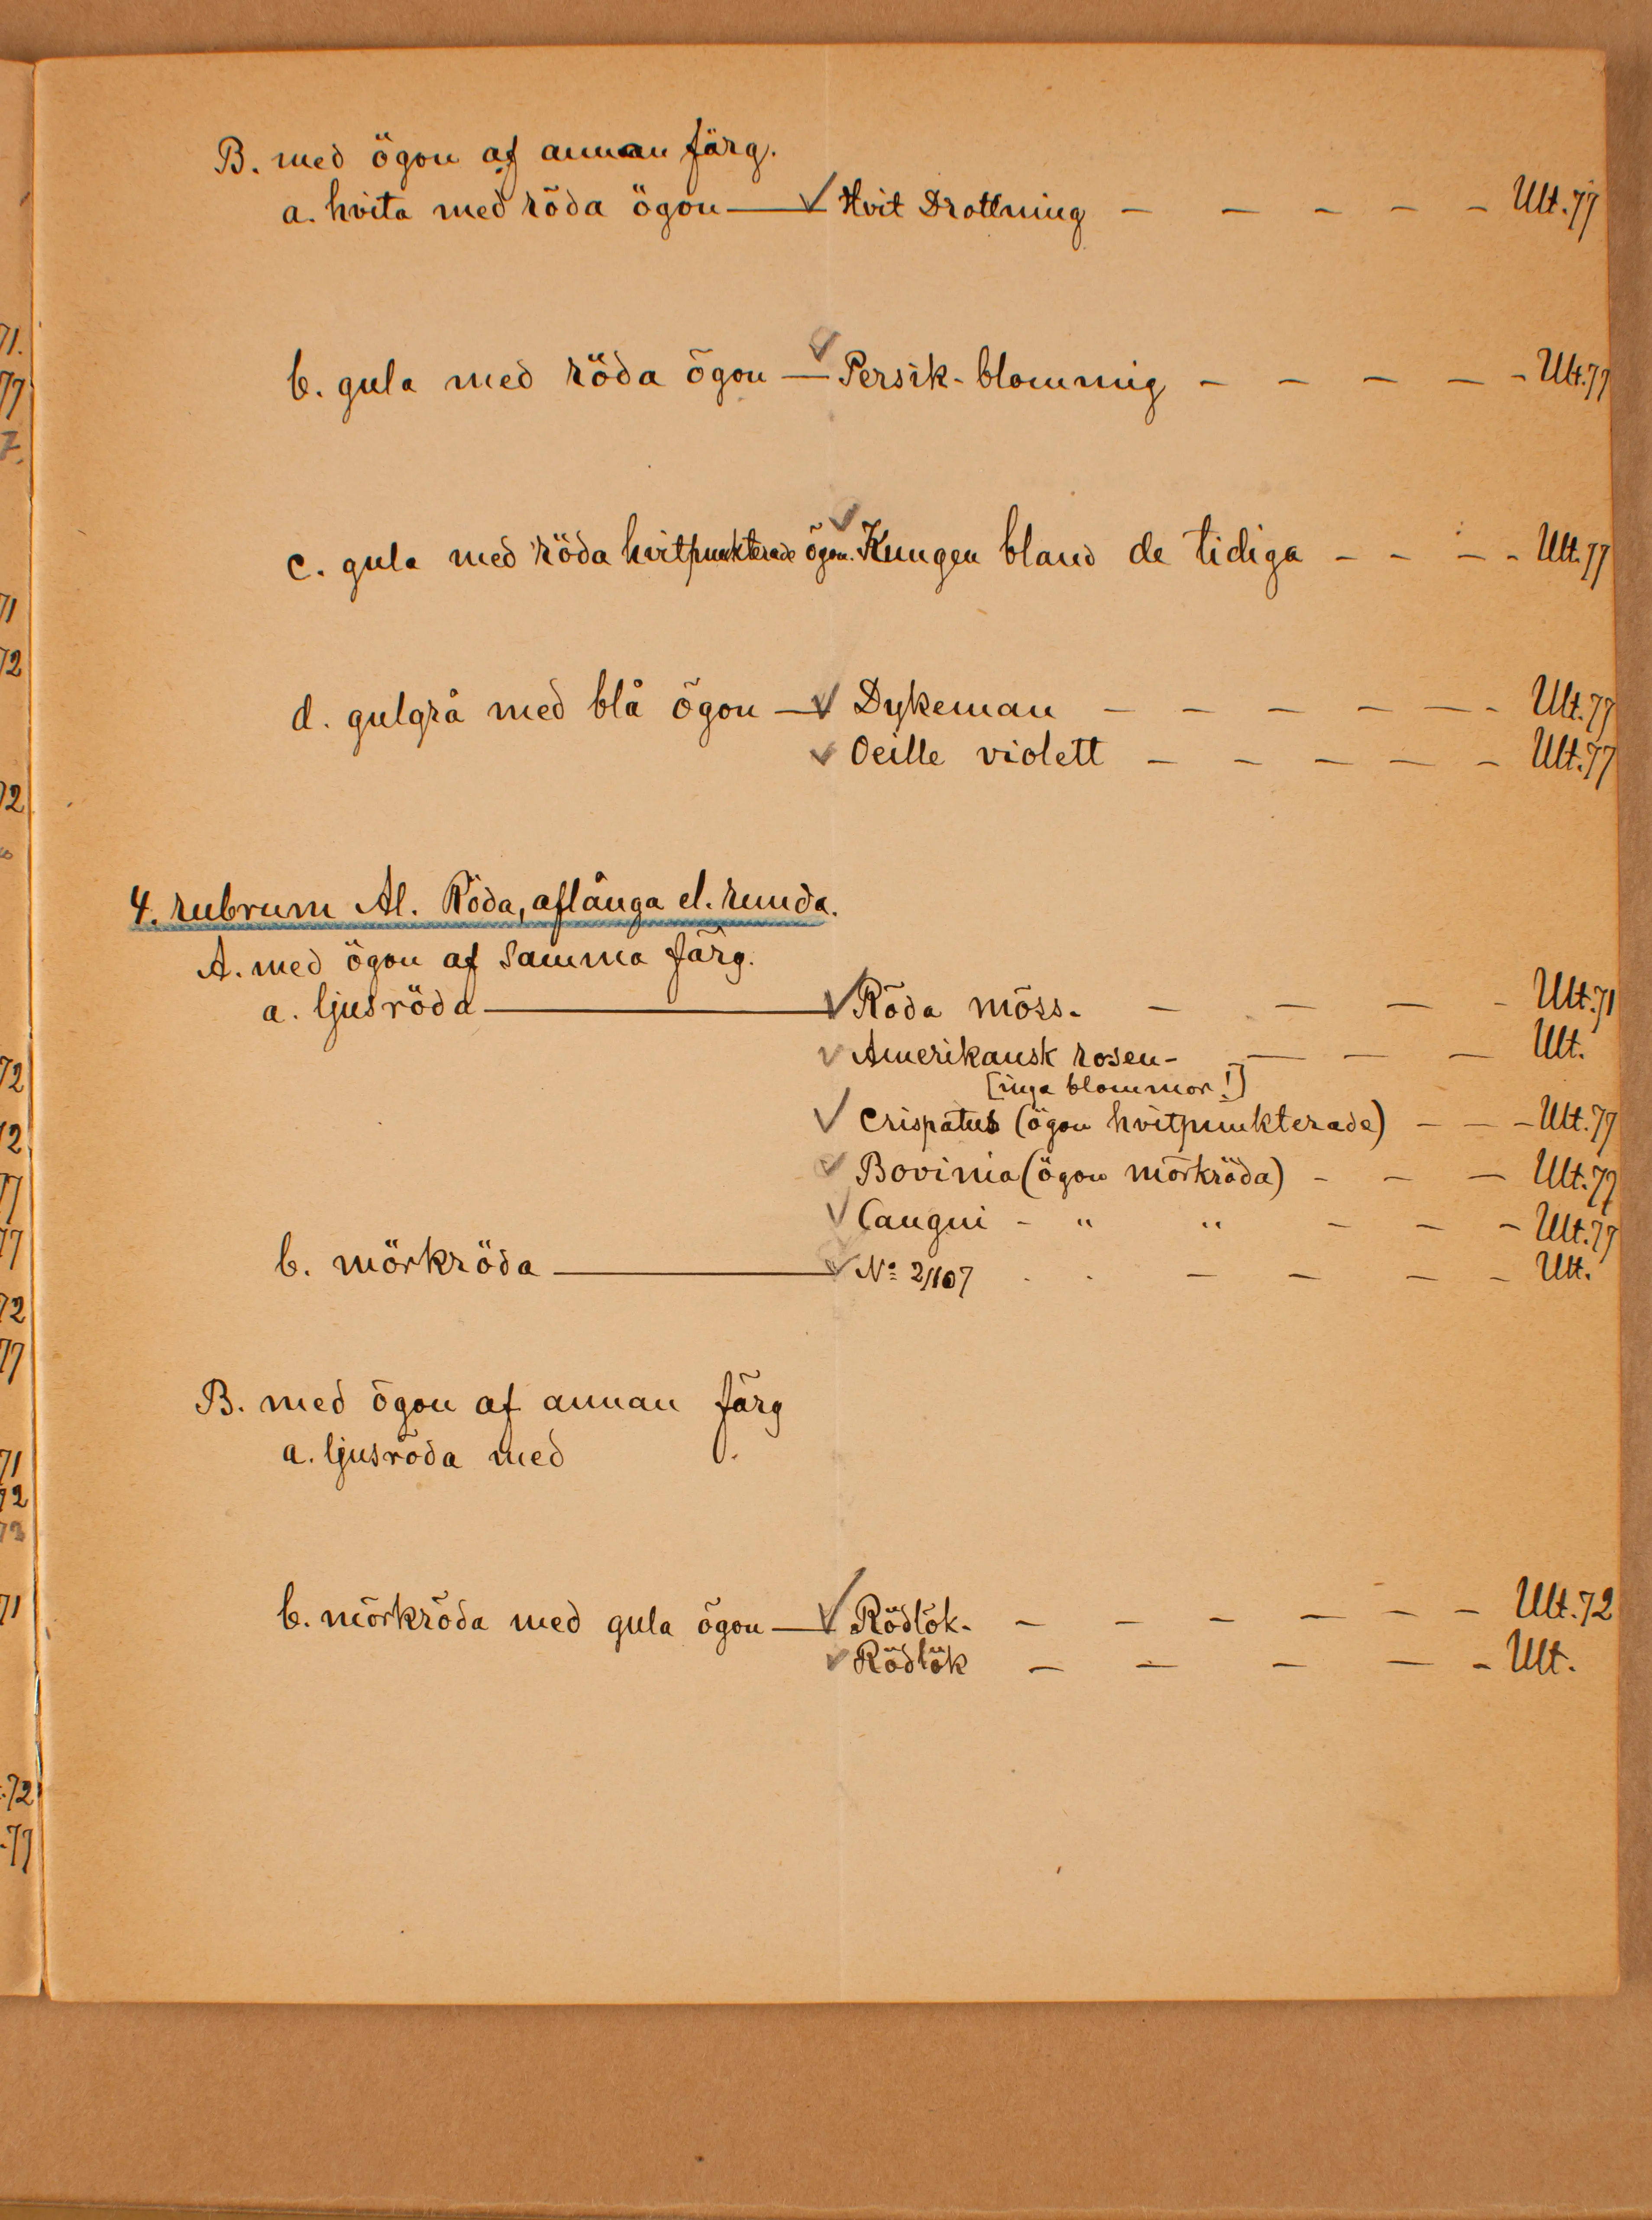 B. med ögon af annan färg.
a. hvita med röda ögon — ✓ Hvit Drottning – – – – – Ult. 77
b. gula med röda ögon — ✓ Persik-blommig – – – – – Ult. 77
c. gula med röda hvitpunkterade ögon. ✓ Kungen bland de tidiga – – – – Ult. 77
d. gulgrå med blå ögon — ✓ Dykeman – – – – – – Ult. 77
✓ Oeille violett – – – – – Ult. 77
4. rubrum Al. Röda, aflånga el. runda.
A. med ögon af samma färg.
a. ljusröda — ✓ Röda möss- – – – – Ult. 71
✓ Amerikansk rosen- – – – Ult.
[inga blommor!]
✓ Crispatus (ögon hvitpunkterade) – – – Ult. 77
✓ Bovinia (ögon mörkröda) – – – Ult. 77
✓ Caugni – " " – – – Ult. 77
b. mörkröda — ✓ No 2/107 . . – – – – Ult.
B. med ögon af annan färg
a. ljusröda med
b. mörkröda med gula ögon — ✓ Rödlök- – – – – – – Ult. 72
✓ Rödlök – – – – – Ult.
71.
77
7.
71
72
72
72
2
77
77
72
77
71
72
73
71
.72
.77